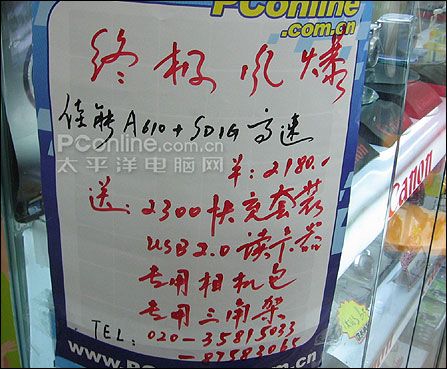 PConline
.com.cn
终极火爆
佳能A610+SD1G高速
PConline.com.cn
太平洋电脑网
¥:2180.-
送:2300快充套装
USB2.0读卡器
专用相机包
专用三角架
TEL:020-35815033
-87583065
www.PConline.com.cn
Canon